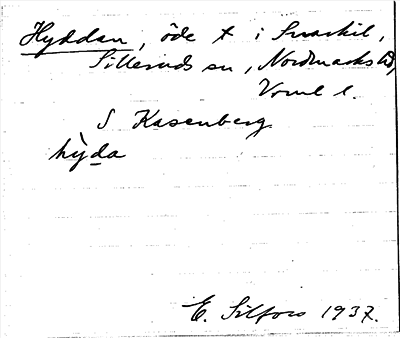 Hyddan, öde t i Snarkil,
Silleruds sn, Nordmarks hd,
Vrml l.
S Kasenberg
hỳda
E. Silfors 1937.